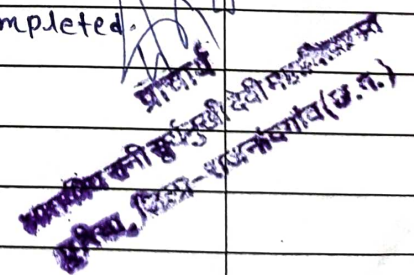 mpleted.
प्राचार्य
शासकीय रानी सूर्यमुखी देवी महाविद्यालय
छुरिया, जिला-राजनांदगांव (छ.ग.)